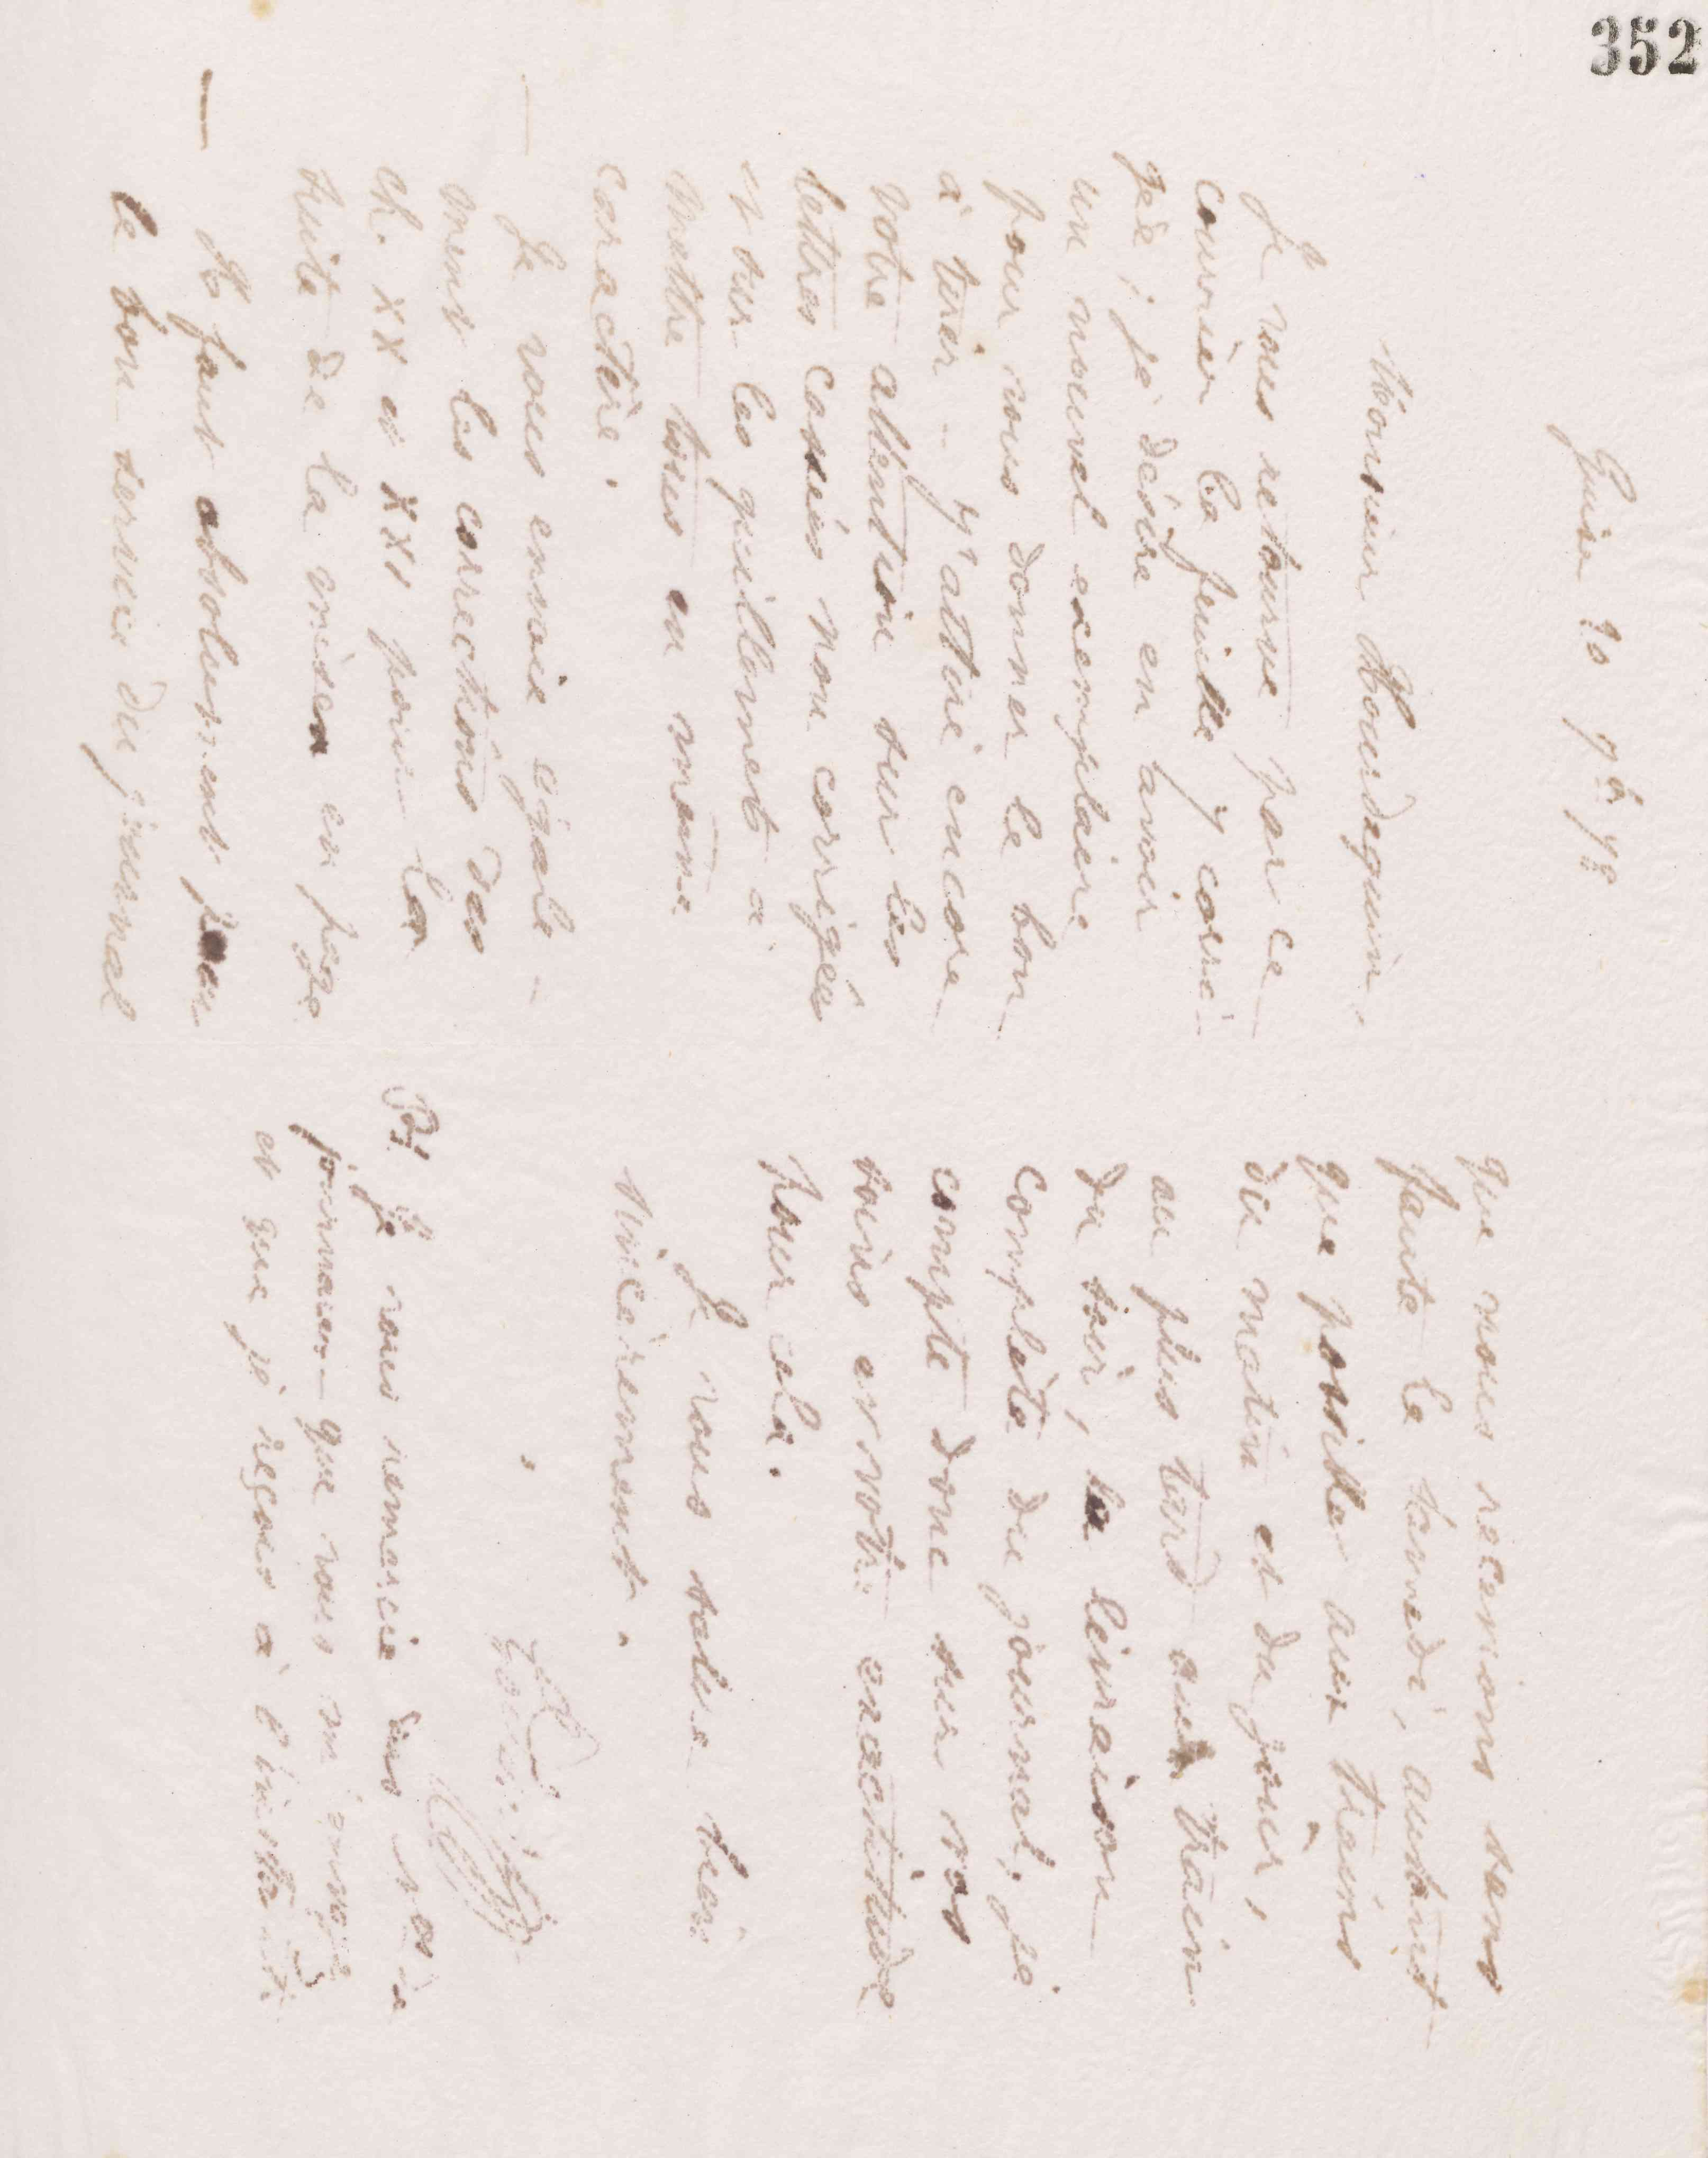 352
Guise 20 7bre 78
Monsieur Bourdequin,
Je vous retourne par ce
courrier la feuille 7 corri-
gée ; je désire en avoir
un nouvel exemplaire
pour vous donner le bon
à tirer - J'attire encore
votre attention sur les
lettres cassées non corrigées
et sur les guillemets à
mettre tous en même
caractère.
Je vous envoie égale-
ment les corrections des
ch. XX et XXI pour la
suite de la mise en page
Il faut absolument pour
le bon service du journal
que nous recevions sans
faute le samedi, autant
que possible aux trains
du matin et du jour,
au plus tard au train
du soir, la livraison
complète du journal ; je
compte donc sur vos
soins et votre exactitude
pour cela.
Je vous salue bien
sincèrement.
Godin
PS Je vous remercie des nos de
journaux que vous m'envoyez
et que je reçois à l'instant.